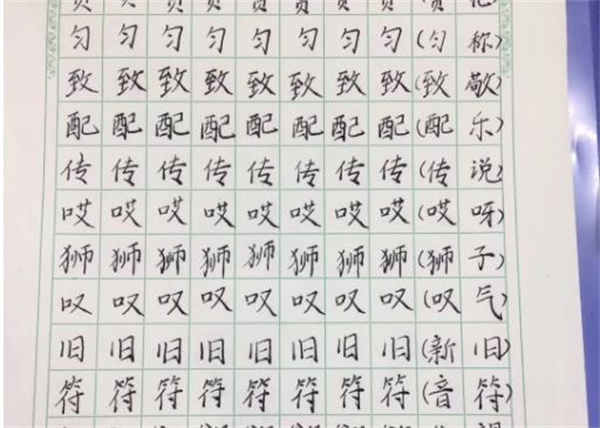 匀匀匀匀匀匀匀匀(匀称)
致致致致致致致致(致敬)
配配配配配配配配(配乐)
传传传传传传传传(传说)
哎哎哎哎哎哎哎哎(哎呀)
狮狮狮狮狮狮狮狮(狮子)
叹叹叹叹叹叹叹叹(叹气)
旧旧旧旧旧旧旧旧(新旧)
符符符符符符符符(音符)